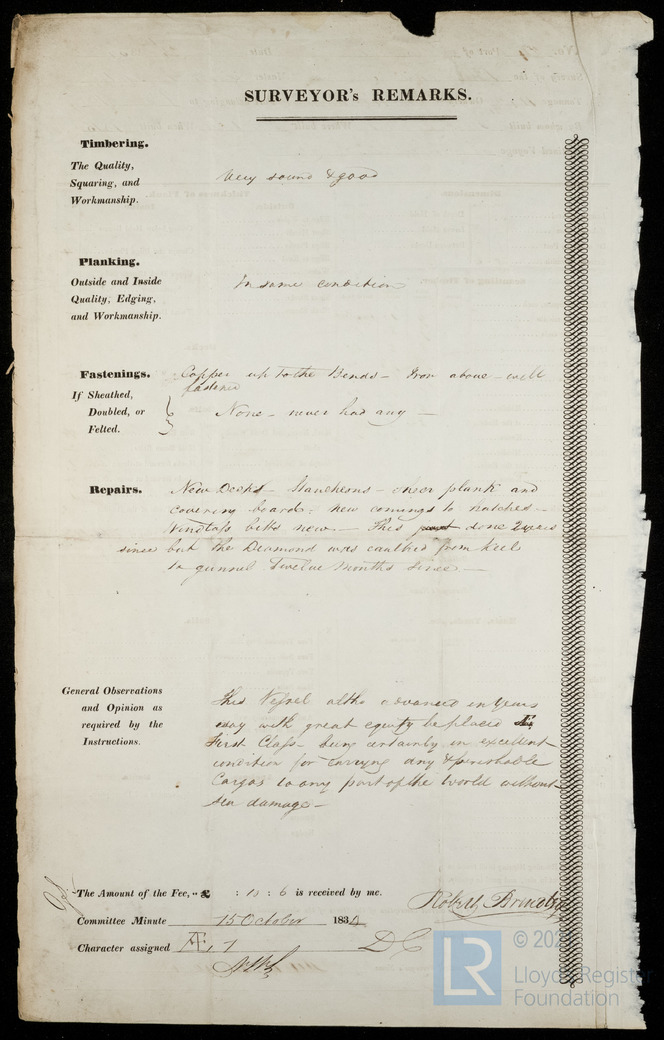 SURVEYOR's REMARKS.
Timbering.
The Quality,
Squaring, and
Workmanship.
Very sound & good
Planking.
Outside and Inside
Quality, Edging,
and Workmanship.
In same condition
Fastenings.
Copper up to the Bends - Iron above - well
fastened
If Sheathed,
Doubled, or
Felted.
None - never had any -
Repairs.
New Decks - Stancheons - sheer plank and
covering board - new comings to hatches -
Windlass bitts new - This done 2 years
since but the Diamond was caulked from Keel
to gunnel Twelve Months since -
General Observations
and Opinion as
required by the
Instructions.
This Vessel altho advanced in Years
may with great equity be placed
First Class - being certainly in excellent
condition for carrying any & perishable
Cargos to any part of the World without
sea damage -
The Amount of the Fee, £ : 10 : 6 is received by me.
Committee Minute 15 October 1834
Character assigned Æ 1
LR
© 202
Lloyd's Register
Foundation